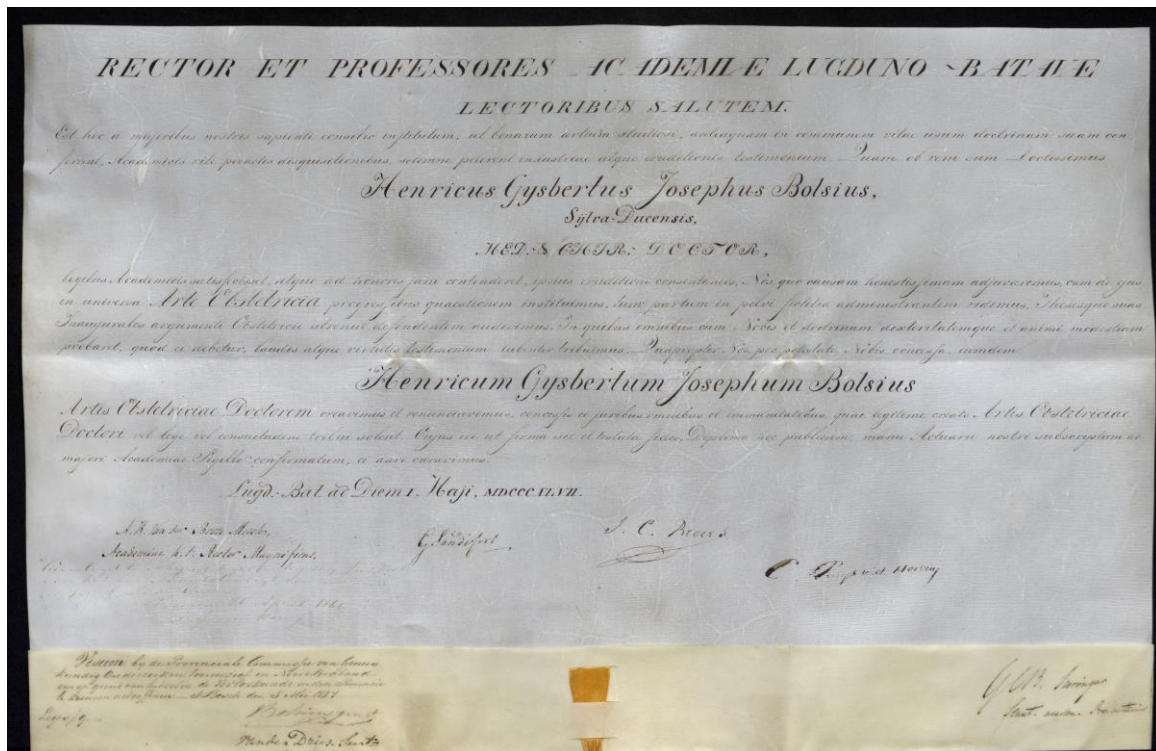 RECTOR ET PROFESSORES ACADEMIÆ LUGDUNO-BATAVÆ
LECTORIBUS SALUTEM.
Est hoc a majoribus nostris sapienti consilio institutum, ut bonarum artium studiosi, antequam in communem vitae usum doctrinam suam con
ferant, Academicis rite peractis disquisitionibus, solemne peterent industriae atque eruditionis testimonium. Quam ob rem cum Doctissimus
Henricus Gysbertus Josephus Bolsius,
Sylva-Ducensis,
MED. & CHIR. DOCTOR,
legibus Academicis satisfecisset, atque ad honores jam contenderet, ipsius eruditioni consentaneos, Nos, quo causam honestissimam adjuvaremus, cum de ejus
in universa Arte Obstetricia progressibus quaestionem instituimus, tum partum in pelvi fictitia administrantem vidimus, Thesesque suas
Inaugurales argumenti Obstetricii strenue defendentem audivimus. In quibus omnibus cum Nobis et doctrinam dexteritatemque et animi modestiam
probaret, quod ei debetur, laudis atque virtutis testimonium lubenter tribuimus. Quamopter Nos pro potestate Nobis concessa, eumdem
Henricum Gysbertum Josephum Bolsius
Artis Obstetriciae Doctorem creavimus et renunciavimus, concessis ei juribus omnibus et immunitatibus, quae legitime creato Artis Obstetriciae
Doctori vel lege vel consuetudine tribui solent. Cujus rei ut firma sit et testata fides, Diploma hoc publicum, manu Actuarii nostri subscriptum ac
majori Academiae Sigillo confirmatum, ei dari curavimus.
Lugd. Bat. ad Diem I Maji, MDCCCXLVII.
A. H. van der Boon Mesch,
Academiae h. t. Rector Magnificus.
G. Sandifort
J. C. Broers
C. Pruys v. d. Hoeven
Visum by de Provinciale Commissie van Genees
kundig Onderzoek en Toevoorzigt in Noord Braband
den 3 Mei 1847
G. C. B. Suringar